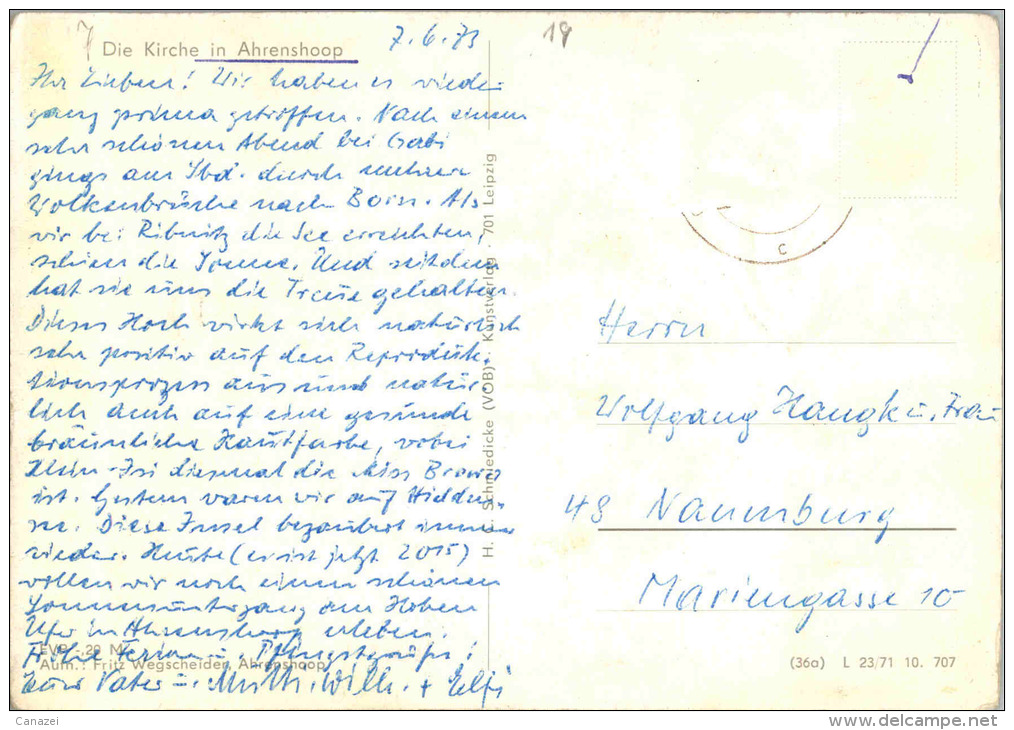 Die Kirche in Ahrenshoop
7.6.73
19
Ihr Lieben! Wir haben es wieder
ganz prima getroffen. Nach einem
sehr schönen Abend bei Gabi
gings am Sbd. durch mehrere
Wolkenbrüche nach Born. Als
wir bei Ribnitz die See erreichten,
schien die Sonne. Und seitdem
hat sie uns die Treue gehalten.
Dieses Hoch wirkt sich natürlich
sehr positiv auf den Reproduk-
tionsprozess aus und natür-
lich auch auf eine gesunde
bräunliche Hautfarbe, wobei
Klein- diesmal die Miss Brown
ist. Gestern waren wir auf Hidden-
see. Diese Insel bezaubert immer
wieder. Heute (es ist jetzt 2015)
wollen wir noch einen schönen
Sonnenuntergang am Hohen
Ufer in Ahrenshoop erleben.
Frohe Ferien u. Pfingstgrüße!
Eure Vater u. Mutti, Willi + Elfi
EVP -,20 M
Aufn.: Fritz Wegscheider, Ahrenshoop
H. C. Schmiedicke (VOB) Kunstverlag · 701 Leipzig
C
Herrn
Wolfgang Haugk u. Frau
48 Naumburg
Mariengasse 10
(36a) L 23/71 10. 707
Canazei
www.delcampe.net